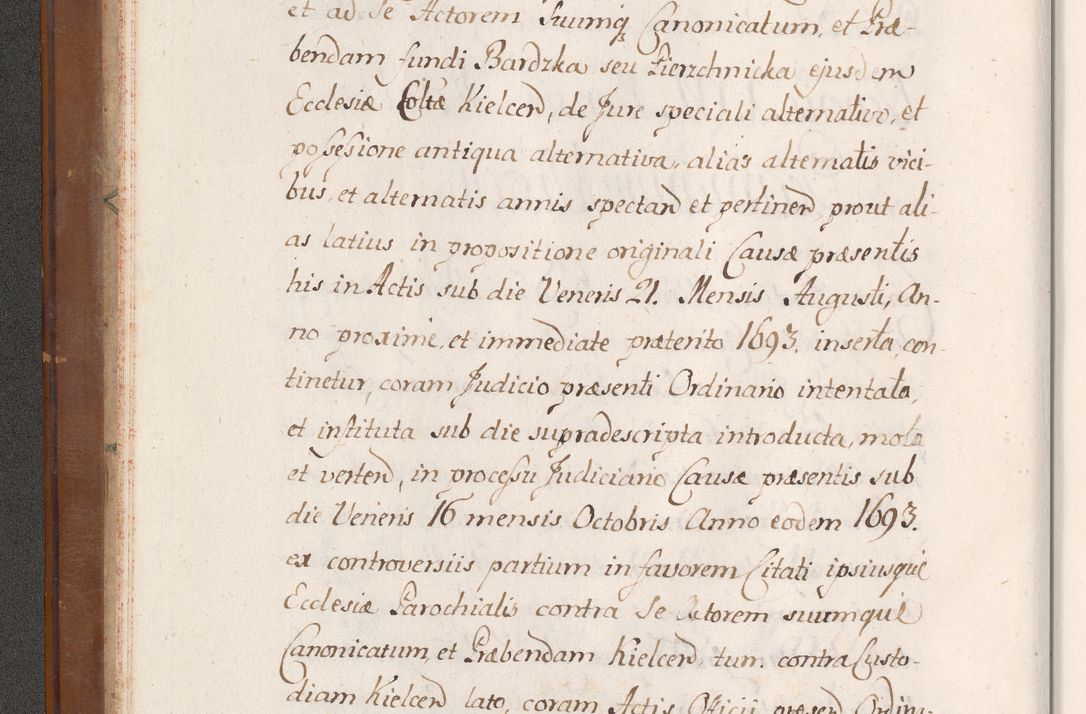 et ad Se Actorem Suumq Canonicatum, et Præ-
bendam fundi Bardzka seu Pierzchnicka ejusdem
Ecclesiæ Coltæ Kielcen, de Jure speciali alternativo, et
possesione antiqua alternativa, alias alternatis vici-
bus, et alternatis annis spectan et pertinen prout ali-
as latius in propositione originali Causæ præsentis
his in Actis sub die Veneris 21. Mensis Augusti, An-
no proxime, et immediate præterito 1693. inserta, con-
tinetur, coram Judicio præsenti Ordinario intentata,
et instituta sub die supradescripta introducta, mota
et verten, in processu Judiciario Causæ præsentis sub
die Veneris 16 mensis Octobris Anno eodem 1693.
ex controversiis partium in favorem Citati ipsiusque
Ecclesiæ Parochialis contra Se Actorem suumque
Canonicatum, et Præbendam Kielcen, tum contra Custo-
diam Kielcen lato, coram Actis Officii præsen Ordina-